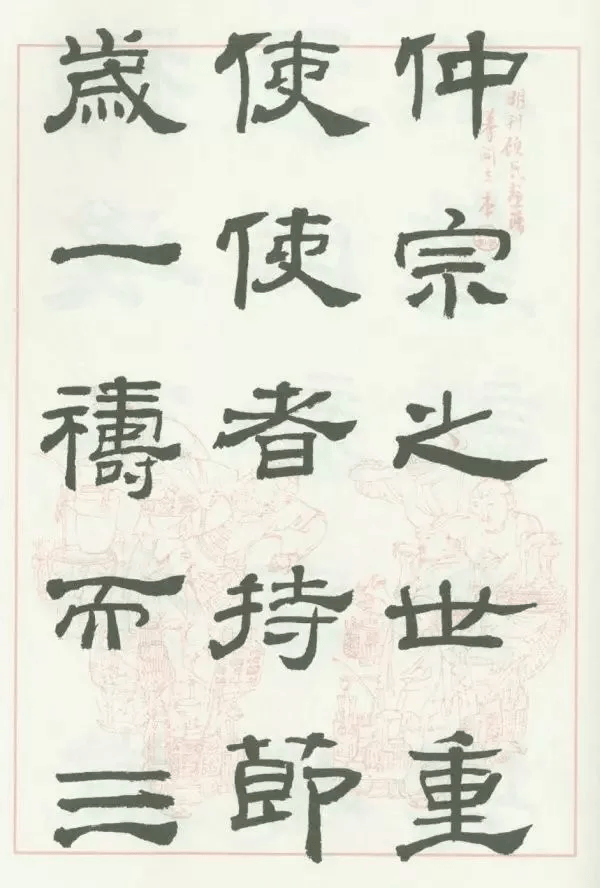 仲宗之世重
使使者持節
歲一禱而三